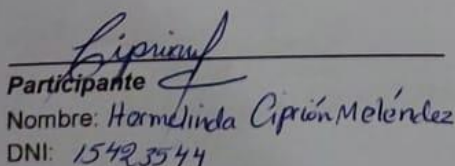 Ciprianf
Participante
Nombre: Hormelinda Ciprión Meléndez
DNI: 15423544